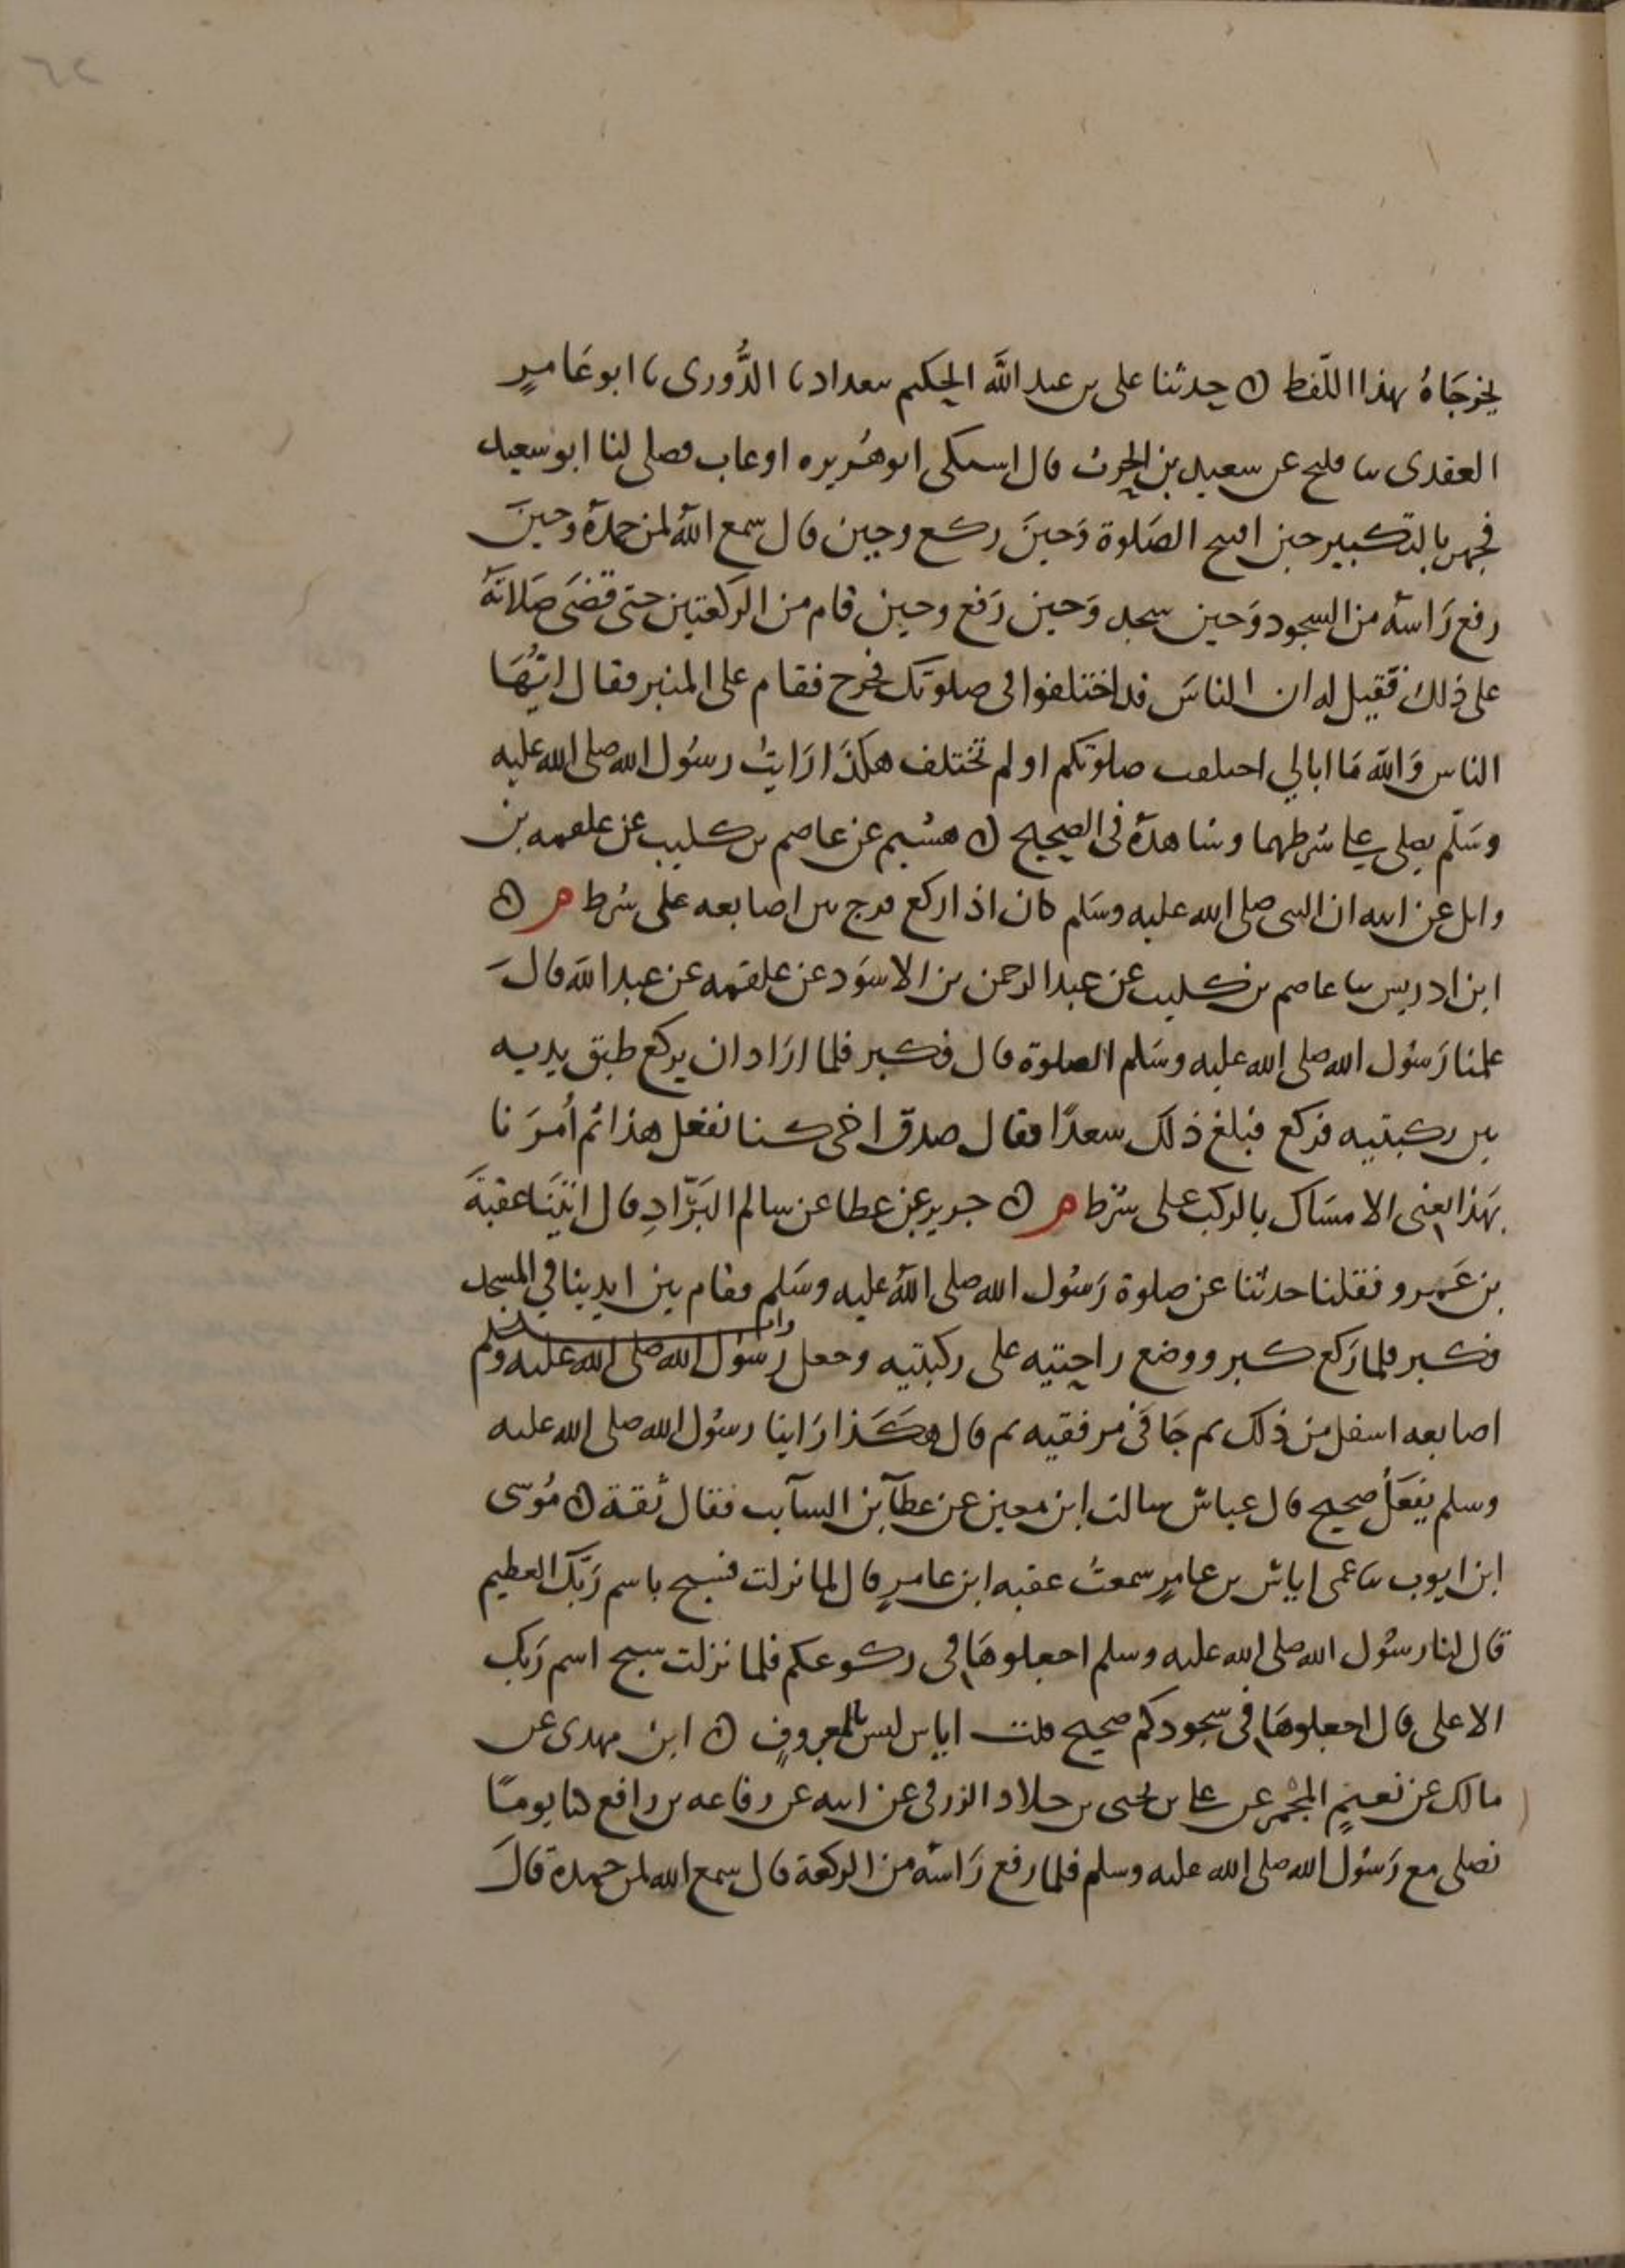 يخرجَاهُ بهذا اللّفظ ن حدثنا على بن عبد اللّه الحكيم ببغداد نا الدُّورى نا ابو عَامرٍ
العقدى نا فليح عن سعيد بن الحرث قال اشتكى ابو هُريره او غاب فصلى لنا ابو سعيد
فجهر بالتكبير حين افتتح الصَلوة وَحينَ ركع وحين قال سمع اللّهُ لمن حمدهُ وحينَ
رفع رَاسهُ من السجود وَحين سجد وَحين رَفع وحين قام من الركعتين حتى قضَى صَلاتَهُ
على ذلك فقيل له ان الناسَ قد اختلفوا فى صلوتك فخرج فقام على المنبر فقال ايُّهَا
الناس وَاللّه مَا ابالي اختلفت صلوتكم او لم تختلف هكذَا رَايتُ رسُول الله صلى الله عليه
وسَلّم يصلى على شرطهما وشاهدهُ فى الصحيح ن هشيم عن عاصم بن كليب عن علقمه بن
وايل عن ابيه ان النبى صلى الله عليه وسَلم كان اذا ركع فرج بين اصابعه على شرط م ن
ابن ادريس نا عاصم بن كليب عن عبد الرحمن بن الاسوَد عن علقمه عن عبد اللّه قالَ
علمنا رَسُول الله صلى الله عليه وسَلم الصلوة قال فكبر فلما ارَاد ان يركع طبق يديه
بين ركبتيه فركع فبلغ ذلك سعدًا فقال صدق اخى كنا نفعل هذا ثم اُمرَنا
بهَذا يعنى الامسَاك بالركب على شرط م ن جرير عن عطا عن سالم البَرَّادِ قال اتينَا عقبةَ
بن عَمرو فقلنا حدثنا عن صلوة رَسُول الله صلى اللّهُ عليه وسَلم فقام بين ايدينا في المسجد
فكبر فلما رَكع كبر ووضع راحتيه على ركبتيه وجعل رسُول الله صلى الله عليه وسلم
اصابعه اسفل من ذلك ثم جَافَى مرفقيه ثم قال هكَذا رَاينا رسُول الله صلى الله عليه
وسلم يفعَلُ صحيح قال عباسٌ سالت ابن معين عن عطآ بن السآيب فقال ثقة ن مُوسى
ابن ايوب نا عمى اياسُ بن عامرٍ سمعتُ عقبه ابن عامرٍ قال لما نزلت فسبح باسم رَبّك العظيم
قال لنا رسُول الله صلى الله عليه وسلم اجعلوهَا فى ركوعكم فلما نزلت سبح اسم رَبك
الاعلى قال اجعلوهَا فى سجودكم صحيح قلت اياس ليس بالمعروفِ ن ابن مهدى عن
مالك عن نعيمٍ المُجْمِر عن على بن يحيى بن خلاد الزرقى عن ابيه عن رفاعه بن رافع كنا يومًا
نصلى مع رَسُول الله صلى الله عليه وسلم فلما رفع رَاسَه من الركعة قال سمع الله لمن حمده قالَ